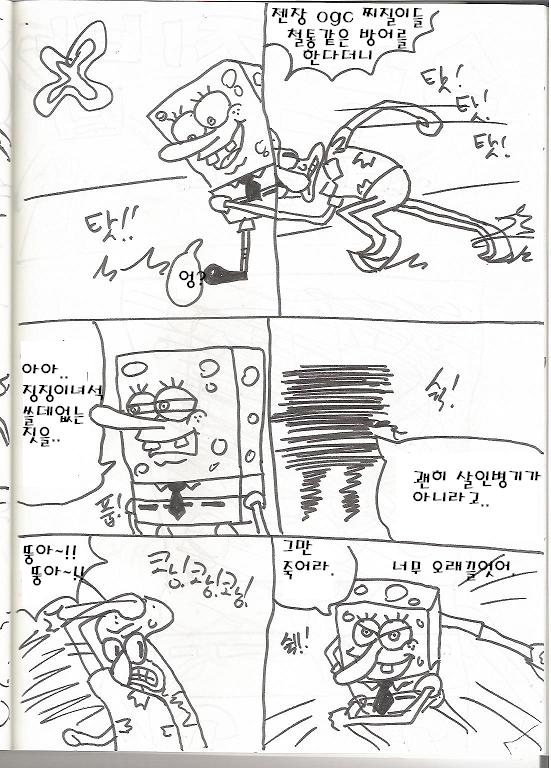 탓!!
엉?
젠장 ogc 찌질이들
철통같은 방어를
한다더니
탓!
탓!
탓!
아아..
징징이녀석
쓸데없는
짓을..
풉!
슉!
괜히 살인병기가
아니라고..
뚱아~!!
뚱아~!!
코닝!코닝!코닝!
그만
죽어라.
너무 오래끌었어.
쉐!